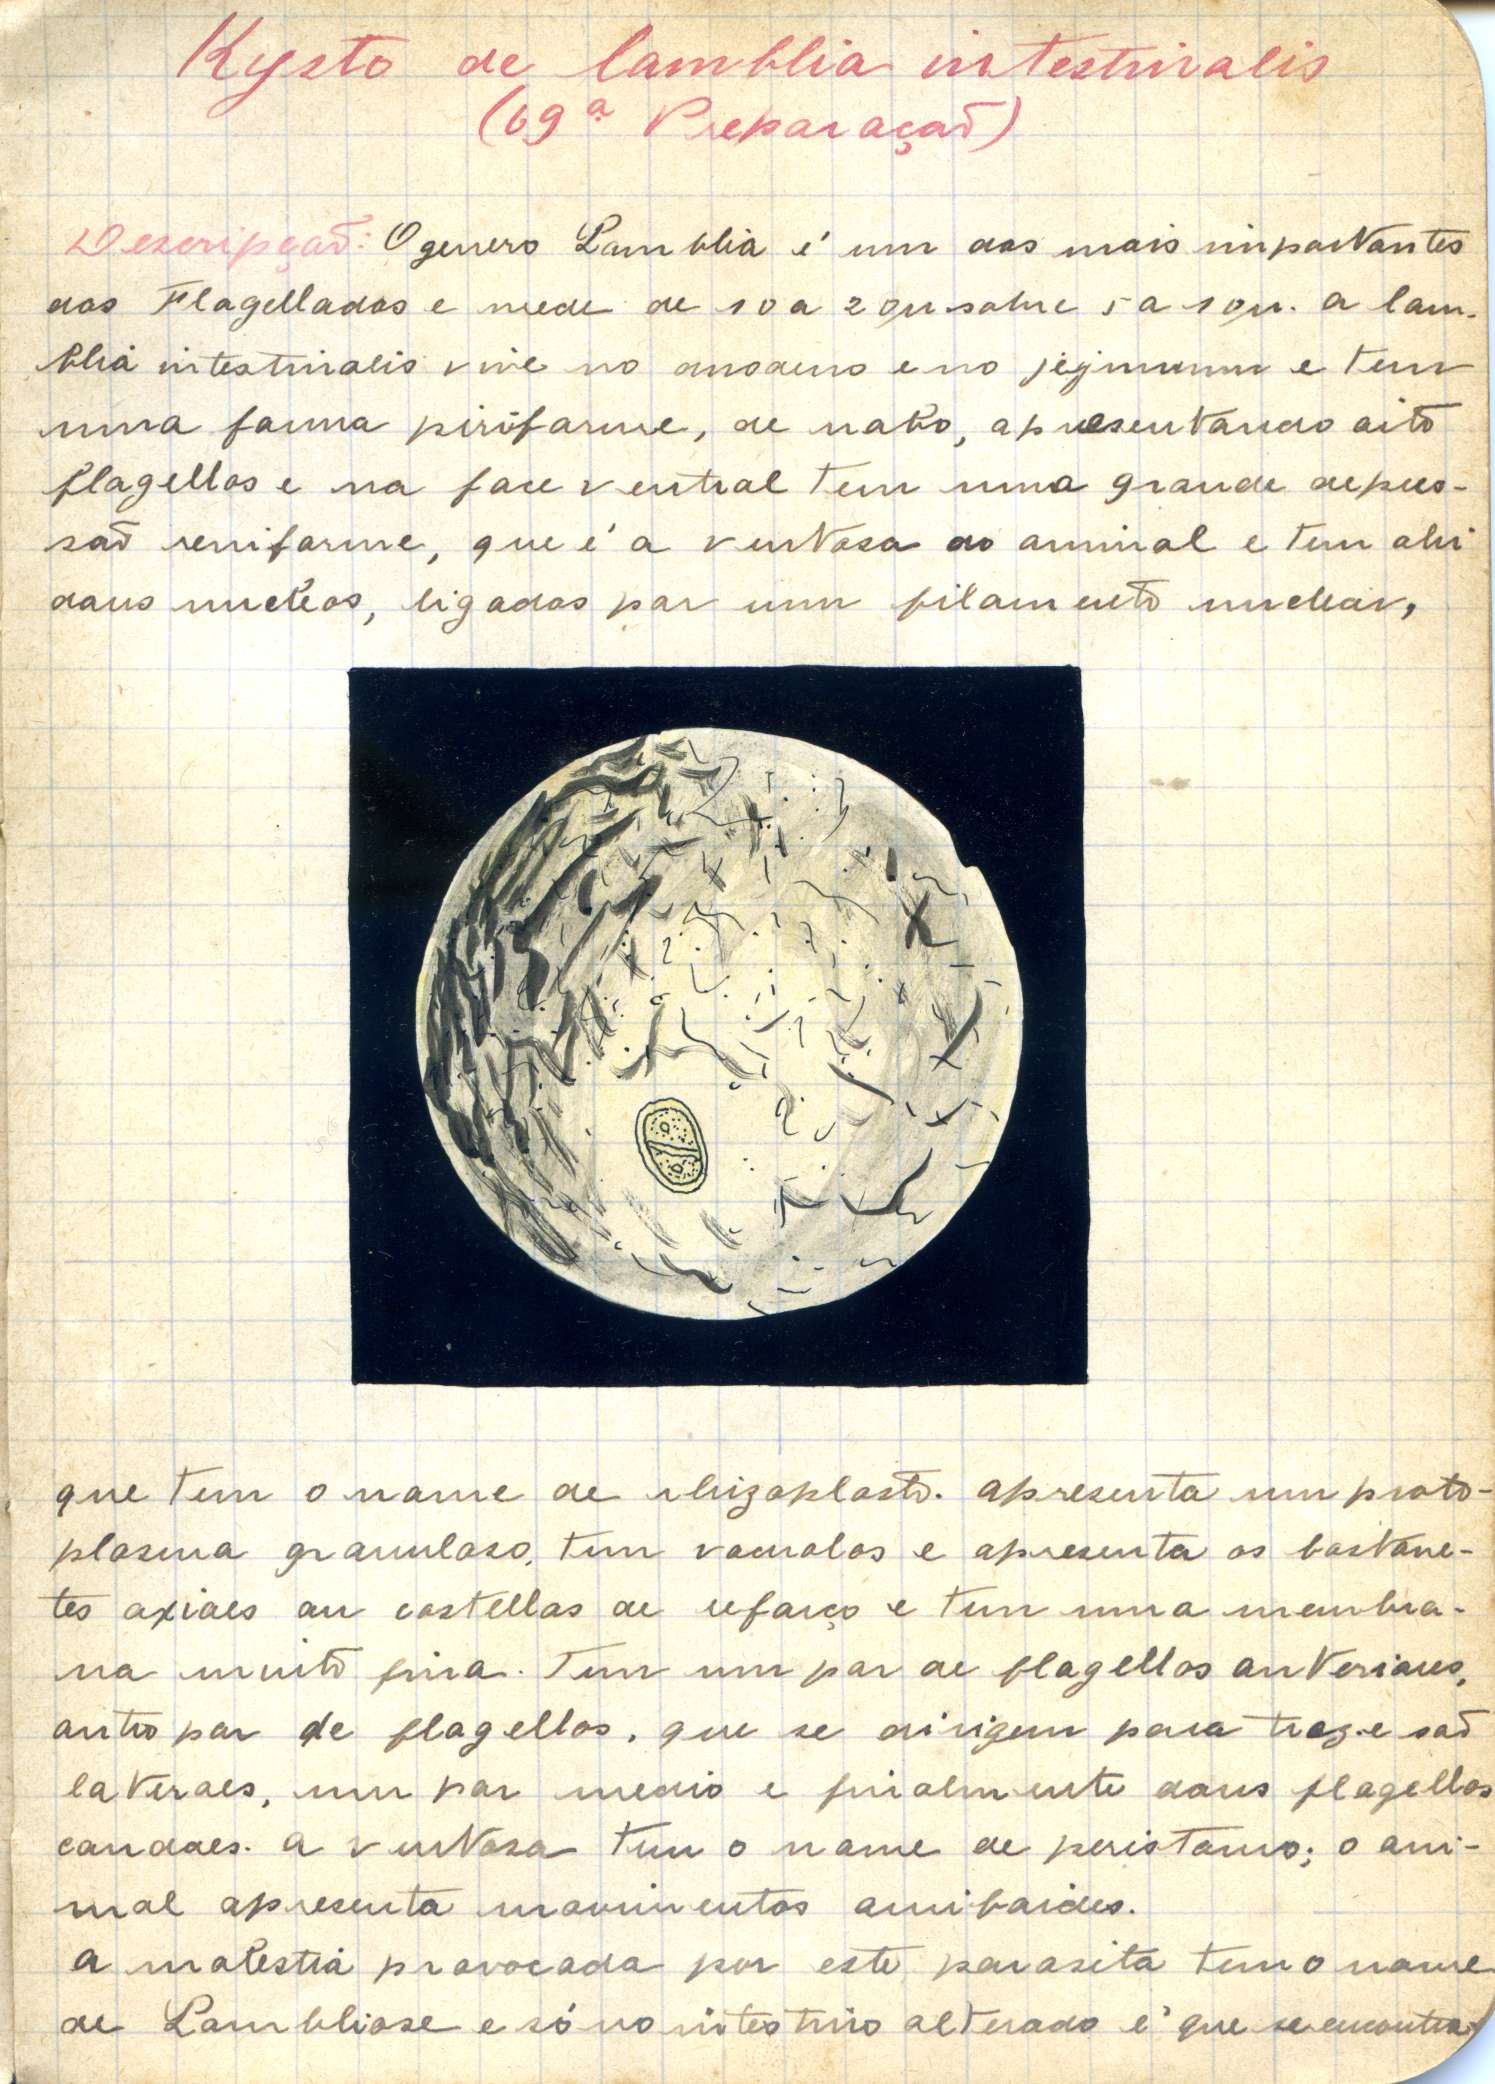 Kysto de lamblia intestinalis
(69ª Preparação)
Descripção: O genero Lamblia é um dos mais importantes
dos Flagellados e mede de 10 a 20µ sobre 5 a 10µ. A lam-
blia intestinalis vive no duodeno e no jejunum e tem
uma forma piriforme, de nabo, apresentando oito
flagellos e na face ventral tem uma grande depres-
são reniforme, que é a ventosa do animal e tem ahi
dous nucleos, ligados por um filamento nuclear,
que tem o nome de rhizoplasto. Apresenta um proto-
plasma granuloso, tem vacuolos e apresenta os bastone-
tes axiaes ou costellas de reforço e tem uma membra-
na muito fina. Tem um par de flagellos anteriores,
outro par de flagellos, que se dirigem para traz e são
lateraes, um par medio e finalmente dous flagellos
caudaes. A ventosa tem o nome de peristomo; o ani-
mal apresenta movimentos amiboides.
A molestia provocada por este parasita tem o nome
de Lambliose e só no intestino alterado é que se encontra